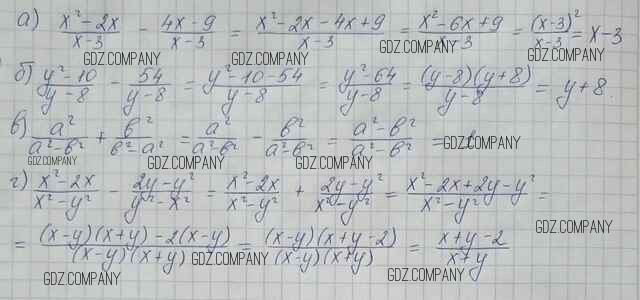 а) (x²-2x)/(x-3) - (4x-9)/(x-3) = (x²-2x-4x+9)/(x-3) = (x²-6x+9)/(x-3) = (x-3)²/(x-3) = x-3
GDZ.COMPANY GDZ.COMPANY GDZ.COMPANY GDZ.COMPANY
б) (y²-10)/(y-8) - 54/(y-8) = (y²-10-54)/(y-8) = (y²-64)/(y-8) = (y-8)(y+8)/(y-8) = y+8.
в) a²/(a²-b²) + b²/(b²-a²) = a²/(a²-b²) - b²/(a²-b²) = (a²-b²)/(a²-b²) = GDZ.COMPANY
GDZ.COMPANY GDZ.COMPANY GDZ.COMPANY GDZ.COMPANY
г) (x²-2x)/(x²-y²) - (2y-y²)/(y²-x²) = (x²-2x)/(x²-y²) + (2y-y²)/(x²-y²) = (x²-2x+2y-y²)/(x²-y²) =
GDZ.COMPANY
= ((x-y)(x+y)-2(x-y))/((x-y)(x+y)) = (x-y)(x+y-2)/((x-y)(x+y)) = (x+y-2)/(x+y)
GDZ.COMPANY GDZ.COMPANY GDZ.COMPANY